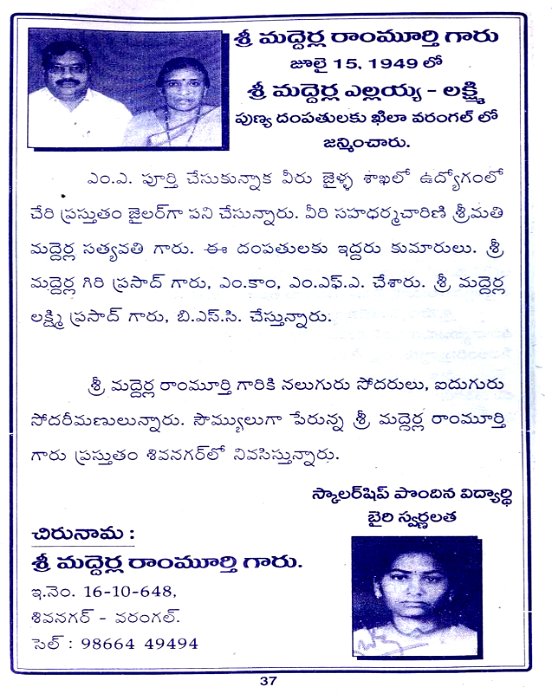 శ్రీ మద్దెర్ల రాంమూర్తి గారు
జూలై 15, 1949 లో
శ్రీ మద్దెర్ల ఎల్లయ్య - లక్ష్మి
పుణ్య దంపతులకు ఖిలా వరంగల్ లో
జన్మించారు.
ఎం.ఎ. పూర్తి చేసుకున్నాక వీరు జైళ్ళ శాఖలో ఉద్యోగంలో
చేరి ప్రస్తుతం జైలర్‌గా పని చేసున్నారు. వీరి సహధర్మచారిణి శ్రీమతి
మద్దెర్ల సత్యవతి గారు. ఈ దంపతులకు ఇద్దరు కుమారులు. శ్రీ
మద్దెర్ల గిరి ప్రసాద్ గారు, ఎం.కాం, ఎం.ఎఫ్.ఎ. చేశారు. శ్రీ మద్దెర్ల
లక్ష్మి ప్రసాద్ గారు, బి.ఎస్.సి. చేస్తున్నారు.
శ్రీ మద్దెర్ల రాంమూర్తి గారికి నలుగురు సోదరులు, ఐదుగురు
సోదరీమణులున్నారు. సౌమ్యులుగా పేరున్న శ్రీ మద్దెర్ల రాంమూర్తి
గారు ప్రస్తుతం శివనగర్‌లో నివసిస్తున్నారు.
స్కాలర్‌షిప్ పొందిన విద్యార్థి
బైరి స్వర్ణలత
చిరునామ :
శ్రీ మద్దెర్ల రాంమూర్తి గారు.
ఇ.నెం. 16-10-648,
శివనగర్ - వరంగల్.
సెల్ : 98664 49494
37